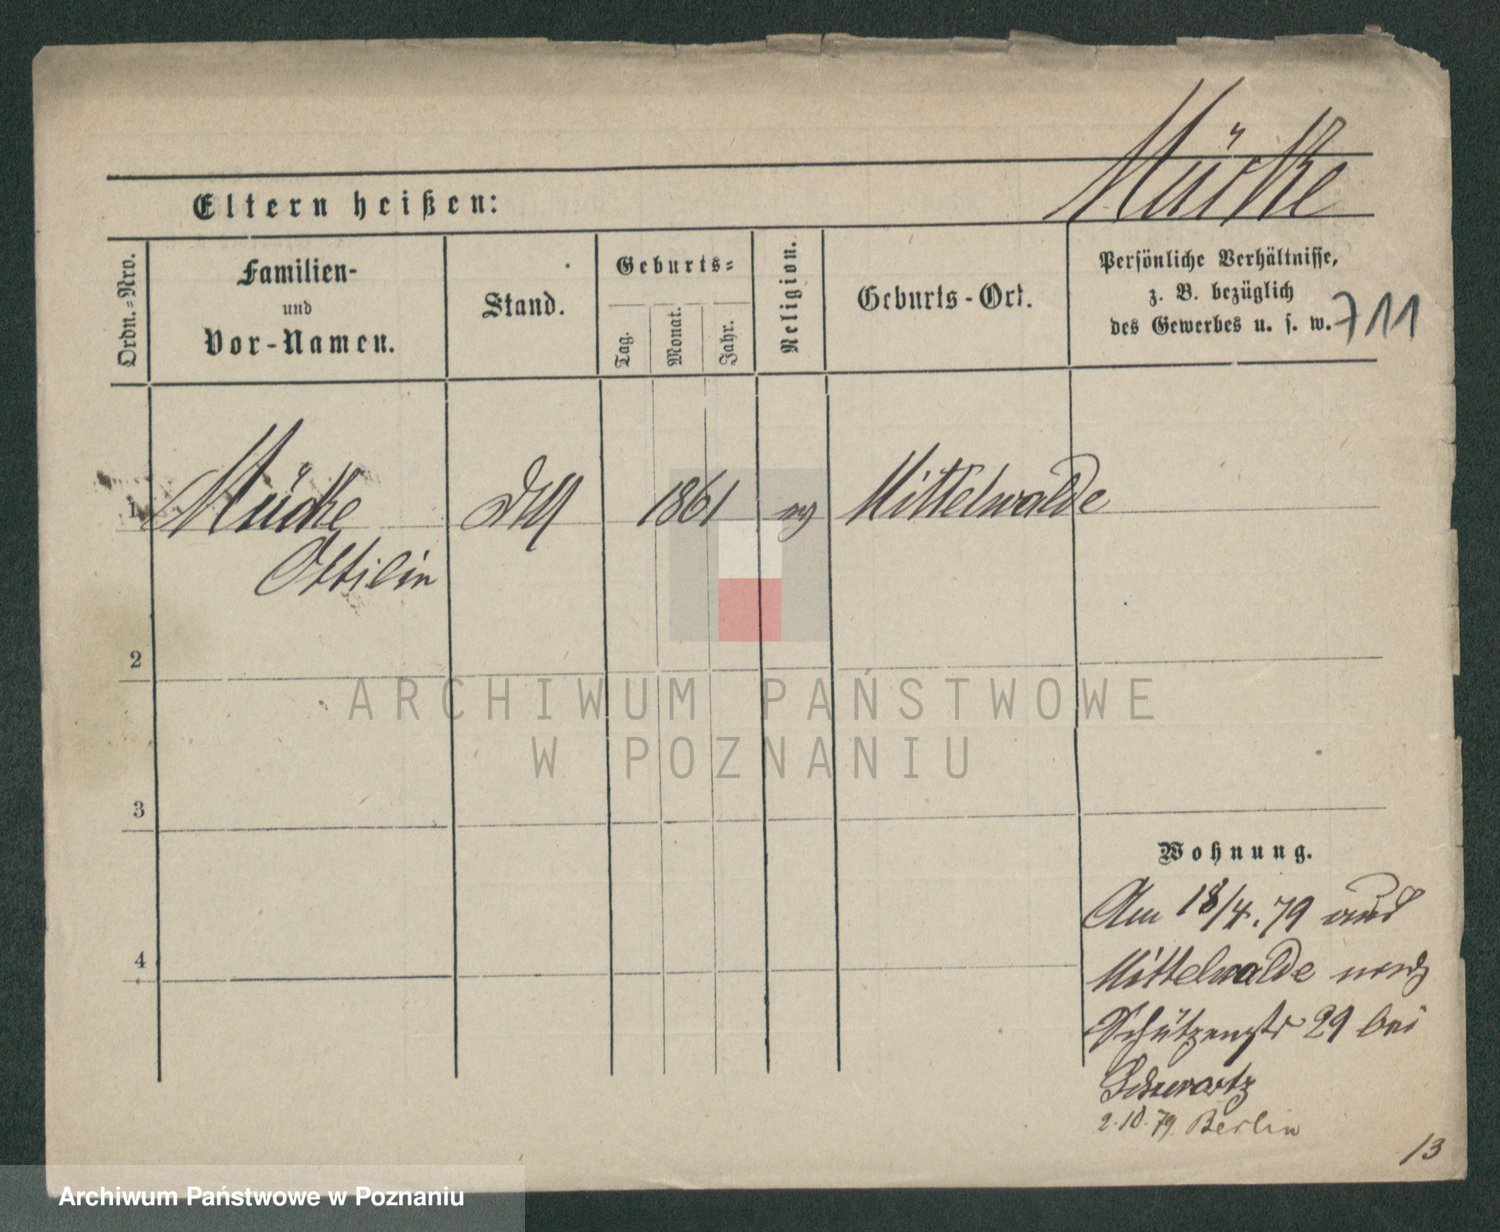 Mücke
Eltern heißen:
Ordn.-Nro.
Familien-
und
Vor-Namen.
Stand.
Geburts-
Tag.
Monat.
Jahr.
Religion.
Geburts-Ort.
Persönliche Verhältnisse,
z. B. bezüglich
des Gewerbes u. s. w.
711
1
Mücke
Ottilie
1861
Mittelwalde
2
3
4
ARCHIWUM PAŃSTWOWE
W POZNANIU
Wohnung.
Am 18/4. 79 aus
Mittelwalde nach
Schützenstr 29 bei
Schwartz
2.10.79 Berlin
13
Archiwum Państwowe w Poznaniu